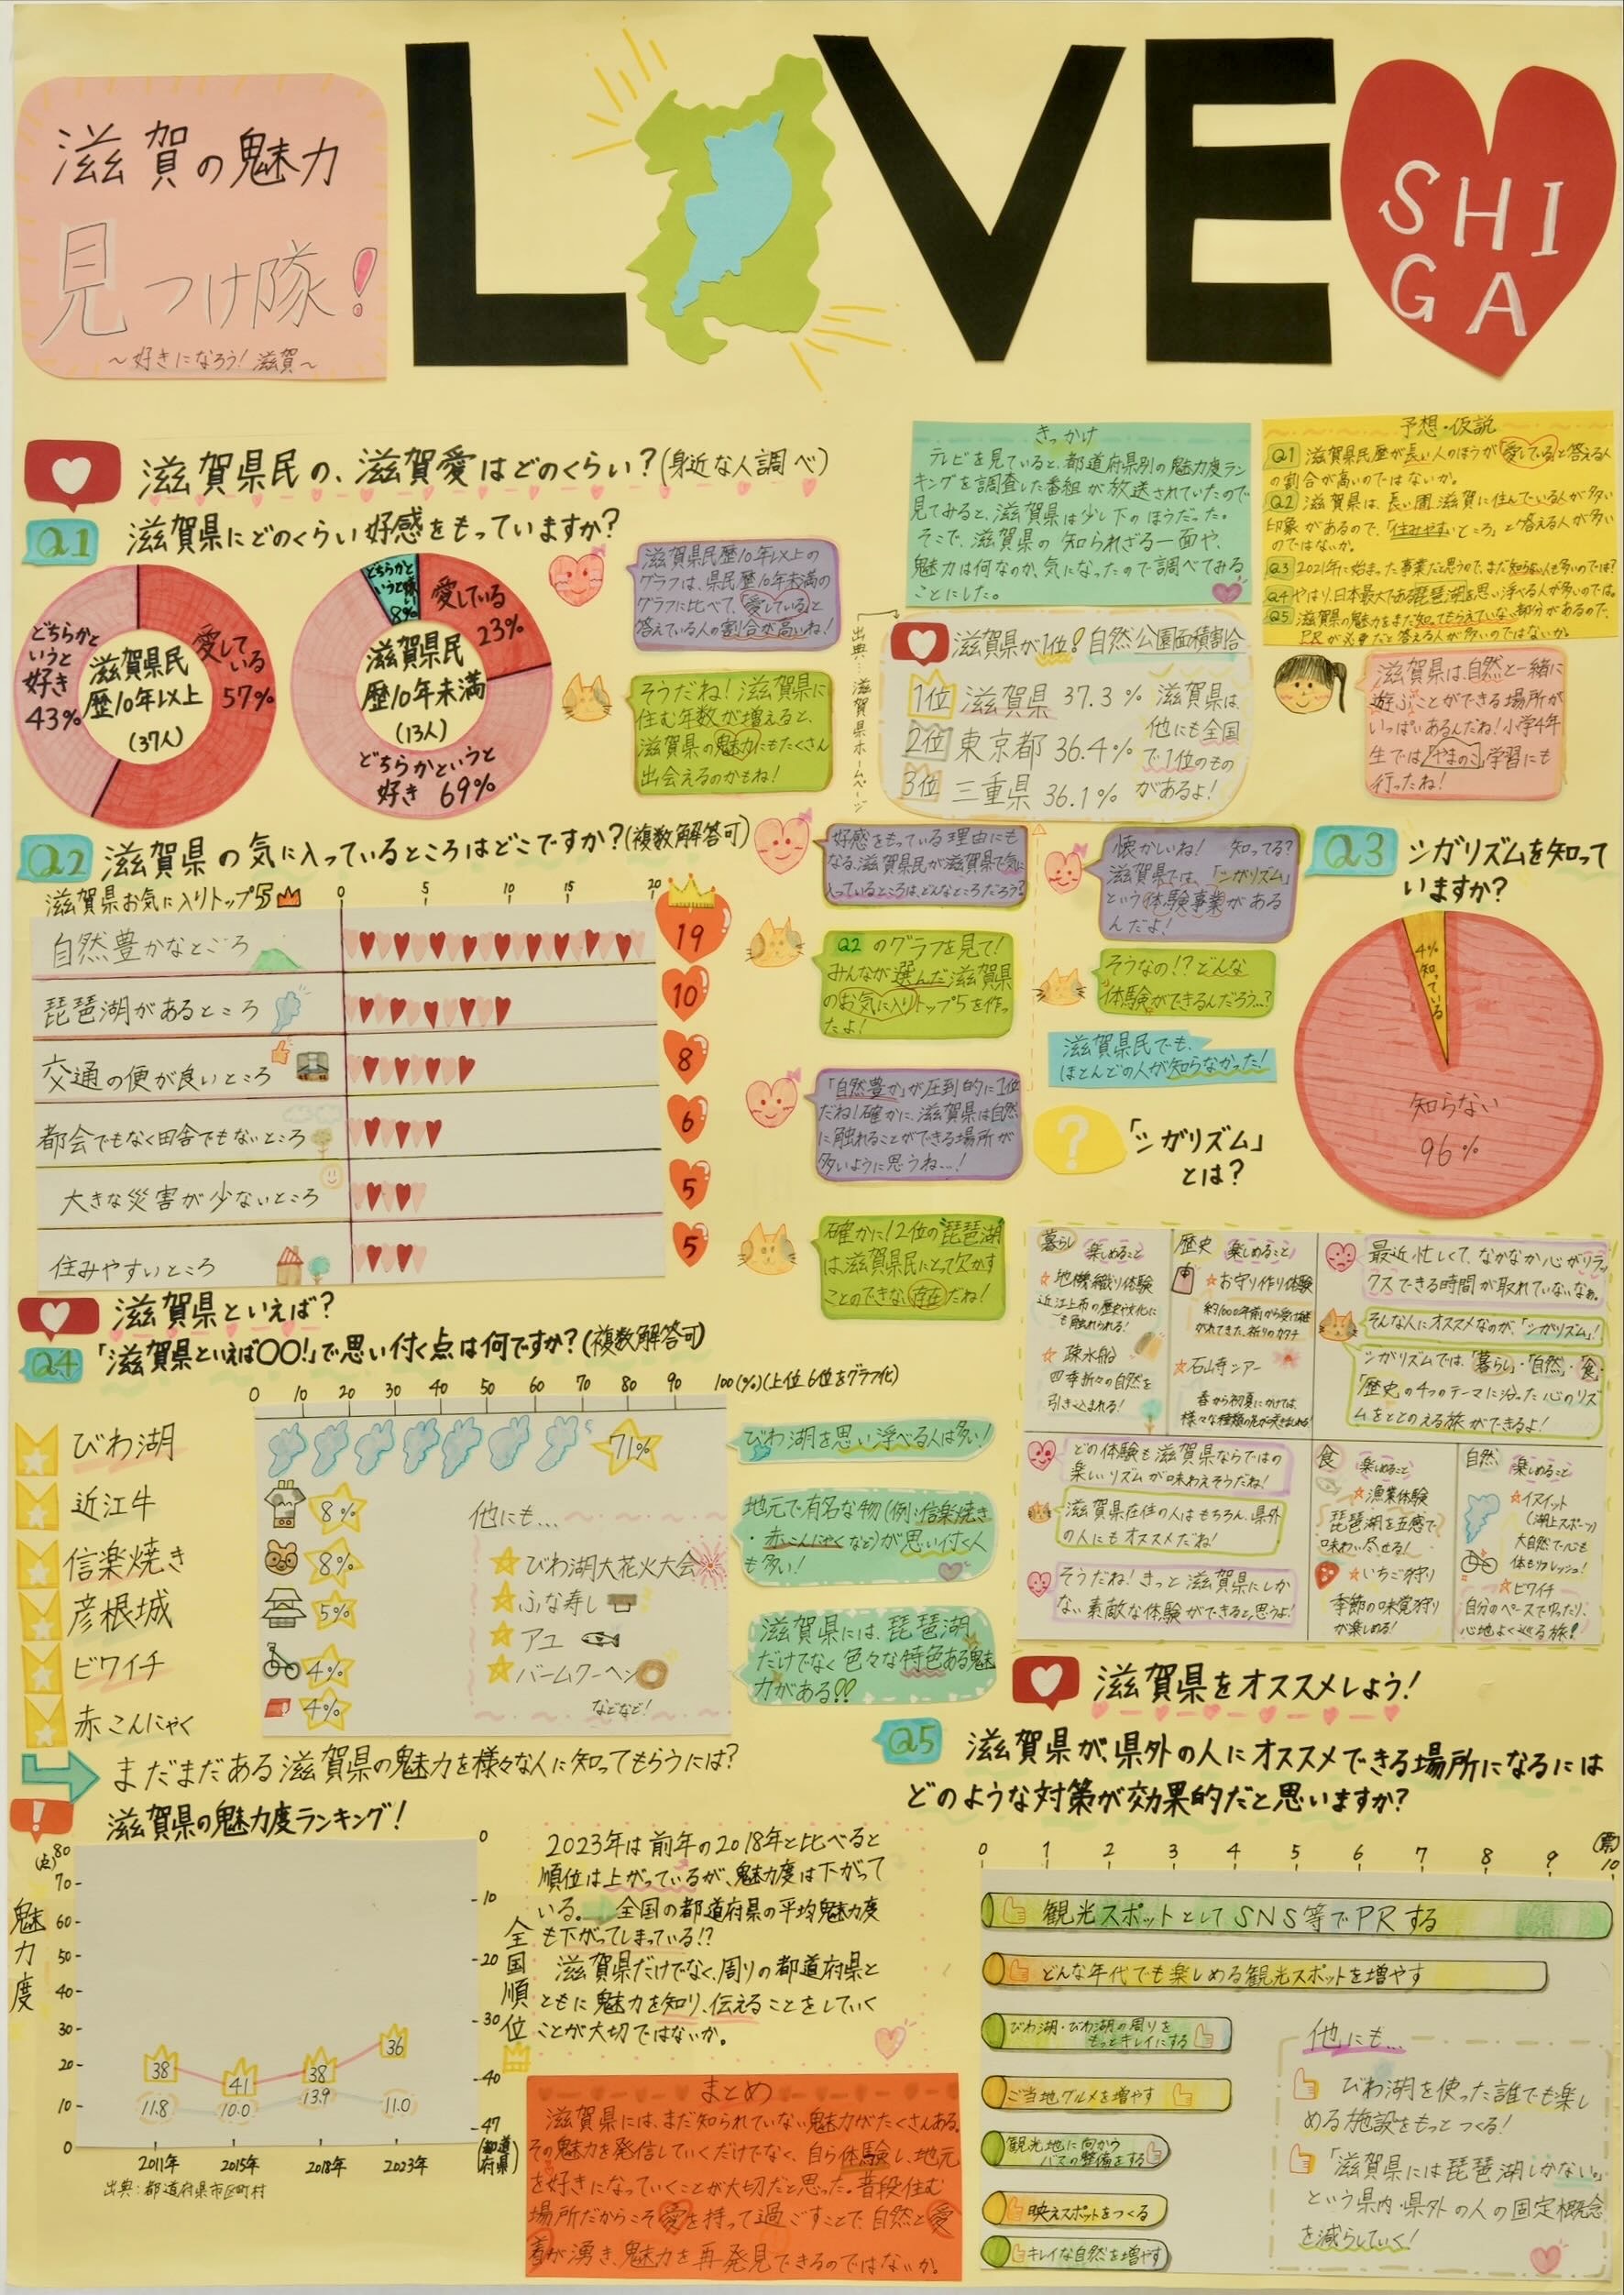 滋賀の魅力
見つけ隊!
～好きになろう!滋賀～
L VE
SHI
GA
滋賀県民の、滋賀愛はどのくらい?(身近な人調べ)
Q1 滋賀県にどのくらい好感をもっていますか?
滋賀県民
歴10年以上
(37人)
愛して
いる
57%
どちらかと
いうと
好き
43%
滋賀県民
歴10年未満
(13人)
どちらかと
いうと嫌い
8%
愛している
23%
どちらかというと
好き 69%
滋賀県民歴10年以上の
グラフは、県民歴10年未満の
グラフに比べて、「愛している」と
答えている人の割合が高いね!
そうだね!滋賀県に
住む年数が増えると、
滋賀県の魅力にもたくさん
出会えるのかもね!
きっかけ
テレビを見ていると、都道府県別の魅力度ラン
キングを調査した番組が放送されていたので
見てみると、滋賀県は少し下のほうだった。
そこで、滋賀県の知られざる一面や、
魅力は何なのか、気になったので調べてみる
ことにした。
予想・仮説
Q1 滋賀県民歴が長い人のほうが「愛している」と答える人
の割合が高いのではないか。
Q2 滋賀県は、長い間滋賀に住んでいる人が多い
印象があるので、「住みやすいところ」と答える人が多い
のではないか。
Q3 2021年に始まった事業だと思うので、まだ知らない人も多いのでは?
Q4 やはり、日本最大である琵琶湖を思い浮べる人が多いのでは。
Q5 滋賀県の魅力をまだ知ってもらえていない部分があるので、
PRが必要だと答える人が多いのではないか。
出典:滋賀県ホームページ
滋賀県が1位!自然公園面積割合
1位 滋賀県 37.3%
2位 東京都 36.4%
3位 三重県 36.1%
滋賀県は、
他にも全国
で1位のもの
があるよ!
滋賀県は、自然と一緒に
遊ぶことができる場所が
いっぱいあるんだね!小学4年
生では「やまのこ」学習にも
行ったね!
Q2 滋賀県の気に入っているところはどこですか?(複数解答可)
滋賀県お気に入りトップ5
0 5 10 15 20
自然豊かなところ 19
琵琶湖があるところ 10
交通の便が良いところ 8
都会でもなく田舎でもないところ 6
大きな災害が少ないところ 5
住みやすいところ 5
好感をもっている理由にも
なる、滋賀県民が滋賀県で気に
入っているところは、どんなところだろう?
Q2 のグラフを見て!
みんなが選んだ滋賀県
のお気に入りトップ5を作っ
たよ!
「自然豊か」が圧倒的に1位
だね!確かに、滋賀県は自然
に触れることができる場所が
多いように思うね…!
確かに!2位の琵琶湖
は滋賀県民にとって欠かす
ことのできない存在だね!
懐かしいね! 知ってる?
滋賀県では、「シガリズム」
という体験事業がある
んだよ!
そうなの!?どんな
体験ができるんだろう…?
滋賀県民でも、
ほとんどの人が知らなかった!
Q3 シガリズムを知って
いますか?
4%
知っている
知らない
96%
?
「シガリズム」
とは?
暮らし 楽しめること
☆地機織り体験
近江上布の歴史や文化に
も触れられる!
☆疎水船
四季折々の自然を
引き込まれる!
歴史 楽しめること
☆お守り作り体験
約1000年前から受け継
がれてきた、祈りのカタチ
☆石山寺ツアー
春から初夏にかけては、
様々な種類の花が咲きほこる!
最近忙しくて、なかなか心がリラッ
クスできる時間が取れていないなぁ。
そんな人にオススメなのが、「シガリズム」!
シガリズムでは、「暮らし」・「自然」・「食」・
「歴史」の4つのテーマに沿った心のリズ
ムをととのえる旅ができるよ!
どの体験も滋賀県ならではの
楽しいリズムが味わえそうだね!
滋賀県在住の人はもちろん、県外
の人にもオススメだね!
そうだね!きっと滋賀県にしか
ない素敵な体験ができると思うよ!
食 楽しめること
☆漁業体験
琵琶湖を五感で
味わい尽せる!
☆いちご狩り
季節の味覚狩り
が楽しめる!
自然 楽しめること
☆イスイット
(湖上スポーツ)
大自然で心も
体もリフレッシュ!
☆ビワイチ
自分のペースでゆったり、
心地よく巡る旅!
滋賀県といえば?
Q4 「滋賀県といえば〇〇!」で思い付く点は何ですか?(複数解答可)
0 10 20 30 40 50 60 70 80 90 100(%)(上位6位をグラフ化)
びわ湖 71%
近江牛 8%
信楽焼き 8%
彦根城 5%
ビワイチ 4%
赤こんにゃく 4%
他にも…
☆びわ湖大花火大会
☆ふな寿し
☆アユ
☆バームクーヘン
などなど!
びわ湖を思い浮べる人は多い!
地元で有名な物(例:信楽焼き
・赤こんにゃくなど)が思い付く人
も多い!
滋賀県には、琵琶湖
だけでなく色々な特色ある魅
力がある!!
まだまだある滋賀県の魅力を様々な人に知ってもらうには?
! 滋賀県の魅力度ランキング!
(点)
80
70
60
50
40
30
20
10
0
魅力度
38 41 38 36
11.8 10.0 13.9 11.0
2011年 2015年 2018年 2023年
出典:都道府県市区町村
0
10
20
30
40
47
(都道府県)
全国順位
2023年は前年の2018年と比べると
順位は上がっているが、魅力度は下がって
いる。→全国の都道府県の平均魅力度
も下がってしまっている!?
滋賀県だけでなく、周りの都道府県と
ともに魅力を知り、伝えることをしていく
ことが大切ではないか。
まとめ
滋賀県には、まだ知られていない魅力がたくさんある。
その魅力を発信していくだけでなく、自ら体験し、地元
を好きになっていくことが大切だと思った。普段住む
場所だからこそ愛を持って過ごすことで、自然と愛
着が湧き、魅力を再発見できるのではないか。
滋賀県をオススメしよう!
Q5 滋賀県が、県外の人にオススメできる場所になるには
どのような対策が効果的だと思いますか?
0 1 2 3 4 5 6 7 8 9 10 (票)
観光スポットとしてSNS等でPRする
どんな年代でも楽しめる観光スポットを増やす
びわ湖・びわ湖の周りを
もっとキレイにする
ご当地グルメを増やす
観光地に向かう
バスの整備をする
映えスポットをつくる
キレイな自然を増やす
他にも…
びわ湖を使った誰でも楽し
める施設をもっとつくる!
「滋賀県には琵琶湖しかない。」
という県内・県外の人の固定概念
を減らしていく!